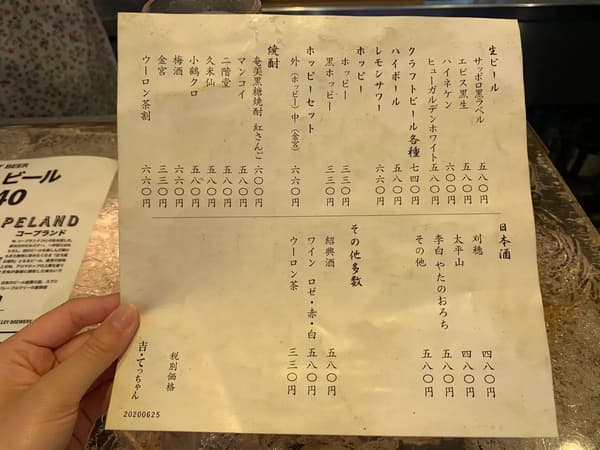 生ビール
サッポロ黒ラベル 五八〇円
エビス黒生 五八〇円
ハイネケン 六〇〇円
ヒューガルデンホワイト 五八〇円
クラフトビール各種 七四〇円
ハイボール 五八〇円
レモンサワー 六六〇円
ホッピー
ホッピー 三三〇円
黒ホッピー 三三〇円
ホッピーセット
外(ホッピー) 中(金宮) 六六〇円
焼酎
奄美黒糖焼酎 紅さんご 六〇〇円
マンコイ 五八〇円
二階堂 五八〇円
久米仙 五八〇円
小鶴クロ 五八〇円
梅酒 六六〇円
金宮 三三〇円
ウーロン茶割 六六〇円
日本酒
刈穂 四八〇円
太平山 四八〇円
李白 やたのおろち 五八〇円
その他 五八〇円
その他多数
紹興酒 五八〇円
ワイン ロゼ・赤・白 五八〇円
ウーロン茶 三三〇円
税別価格
吉・てっちゃん
20200625
BEER
ビール
40
PELAND
コープランド